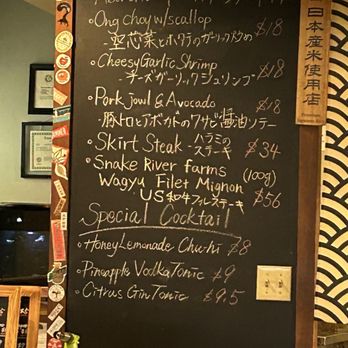 ・Ong choy w/scallop $18
-空芯菜とホタテのガーリック炒め
・Cheesy Garlic Shrimp $18
-チーズガーリックシュリンプ
・Pork jowl & Avocado $18
-豚トロとアボカドのワサビ醤油ソテー
・Skirt Steak -ハラミのステーキ $34
・Snake River farms (100g)
Wagyu Filet Mignon $56
-US和牛フィレステーキ
Special Cocktail
・Honey Lemonade Chu-hi $8
・Pineapple Vodka Tonic $9
・Citrus Gin Tonic $9.5
日本産米使用店